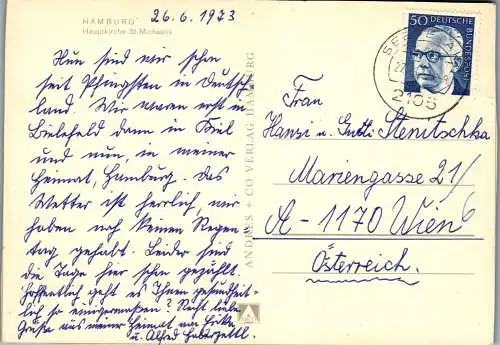 HAMBURG
Hauptkirche St. Michaelis
26.6.1973
Nun sind wir schon
seit Pfingsten in Deutsch-
land. Wir waren erst in
Bielefeld dann in Kiel
und nun, in meiner
Heimat, Hamburg. Das
Wetter ist herrlich, wir
haben noch keinen Regen-
tag gehabt. Leider sind
die Tage hier schon gezählt.
Hoffentlich geht es Ihnen gesundheit-
lich so einigermaßen? Recht liebe
Grüße aus meiner Heimat von Erika
u. Alfred
ANDRES + CO VERLAG HAMBURG
50
DEUTSCHE
BUNDESPOST
2105
Frau
Hansi u. Gutli Stenitschka
Mariengasse 21/6
A-1170 Wien
Österreich.